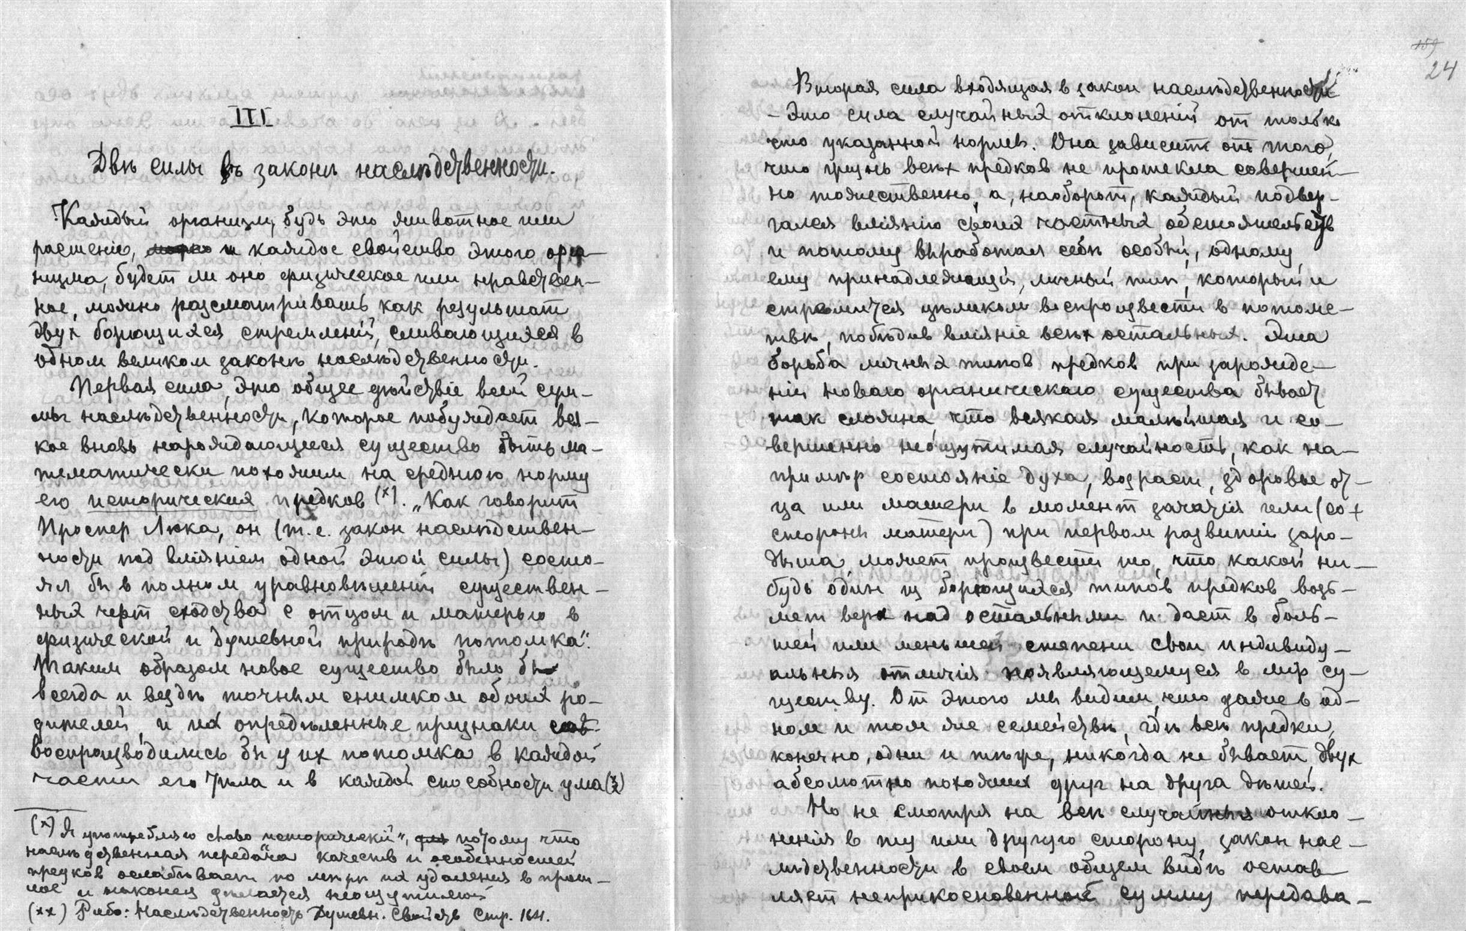 III
Двѣ силы въ законѣ наслѣдственности.
Каждый организм, будь это животное или
растение, и каждое свойство этого орга-
низма, будет ли оно физическое или нравствен-
ное, можно разсматривать как результат
двух борющихся стремлений, сливающихся в
одном великом законѣ наслѣдственности.
Первая сила, это общее дѣйствіе всей сум-
мы наслѣдственности, которое побуждает вся-
кое вновь нарождающееся существо быть ма-
тематически похожим на среднюю норму
его исторических предков (х). „Как говорит
Проспер Люка, он (т.е. закон наслѣдствен-
ности под вліянием одной этой силы) состо-
ял бы в полном уравновѣшеніи существен-
ных черт сходства с отцом и матерью в
физической и душевной природѣ потомка“.
Таким образом новое существо было бы
всегда и вездѣ точным снимком обоих ро-
дителей, и их опредѣленные признаки
воспроизводились бы у их потомка в каждой
части его тѣла и в каждой способности ума
(х) Я употребляю слово исторический“, потому что
наслѣдственная передача качеств и особенностей
предков ослабѣвает по мѣрѣ их удаления в прош-
лое и наконец дѣлается неощутимой
(хх) Рибо: Наслѣдственность Душевн. Свойств Стр. 164.
24
Вторая сила входящая в закон наслѣдственности
– Это сила случайных отклонений от только
что указанной нормы. Она зависит от того,
что жизнь всѣх предков не протекла совершен-
но тожественно, а, наоборот, каждый подвер-
гался вліянію своих частных обстоятельств
и потому выработал себѣ особый, одному
ему принадлежащий, личный тип, который и
стремится цѣликом воспроизвести в потомс-
твѣ, побѣдив вліяніе всѣх остальных. Эта
борьба личных типов предков при зарожде-
ніи новаго органическаго существа бывает
так сложна что всякая малѣйшая и со-
вершенно неощутимая случайность, как на-
примѣр состояніе духа, возраст, здоровье от-
ца или матери в момент зачатія или (со
стороны матери) при первом развитіи заро-
дыша может произвести то, что какой ни-
будь один из борющихся типов предков возь-
мет верх над остальными и даст в боль-
шей или меньшей степени свои индивиду-
альныя отличія появляющемуся в мір су-
ществу. От этого мы видим что даже в од-
ном и том же семействѣ, гдѣ всѣ предки,
конечно, одни и тѣже, никогда не бывает двух
абсолютно похожих друг на друга дѣтей.
Но не смотря на всѣ случайныя откло-
ненія в ту или другую сторону, закон нас-
лѣдственности в своем общем видѣ остав
ляет неприкосновенной сумму передава-